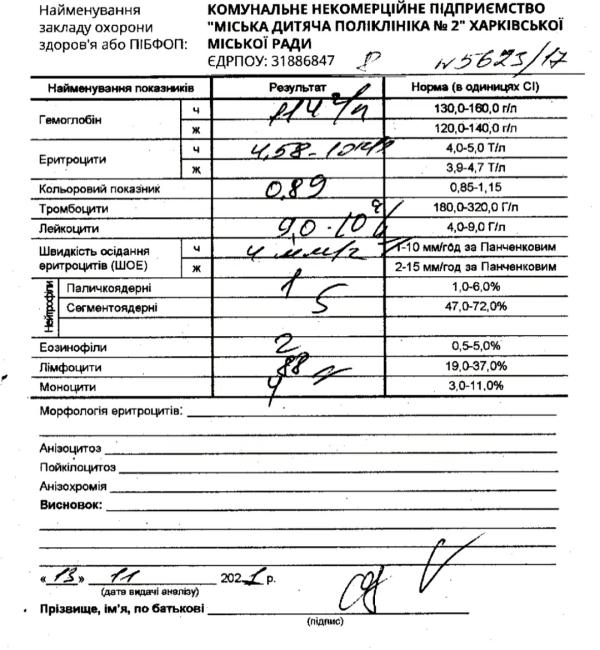 Найменування
закладу охорони
здоров'я або ПІБФОП:
КОМУНАЛЬНЕ НЕКОМЕРЦІЙНЕ ПІДПРИЄМСТВО
"МІСЬКА ДИТЯЧА ПОЛІКЛІНІКА № 2" ХАРКІВСЬКОЇ
МІСЬКОЇ РАДИ
ЄДРПОУ: 31886847 8 N5623/17
Найменування показників Результат Норма (в одиницях СІ)
Гемоглобін ч 114 г/л 130,0-160,0 г/л
ж 120,0-140,0 г/л
Еритроцити ч 4,58 4,0-5,0 Т/л
ж 3,9-4,7 Т/л
Кольоровий показник 0,89 0,85-1,15
Тромбоцити 180,0-320,0 Г/л
Лейкоцити 9,0·10⁹ 4,0-9,0 Г/л
Швидкість осідання еритроцитів (ШОЕ) ч 4 мм/г 1-10 мм/год за Панченковим
ж 2-15 мм/год за Панченковим
Нейтрофіли Паличкоядерні 1 1,0-6,0%
Сегментоядерні 5 47,0-72,0%
Еозинофіли 2 0,5-5,0%
Лімфоцити 88 19,0-37,0%
Моноцити 4 3,0-11,0%
Морфологія еритроцитів:
Анізоцитоз
Пойкілоцитоз
Анізохромія
Висновок:
« 13 » 11 2021 р.
(дата видачі аналізу)
Прізвище, ім'я, по батькові
(підпис)